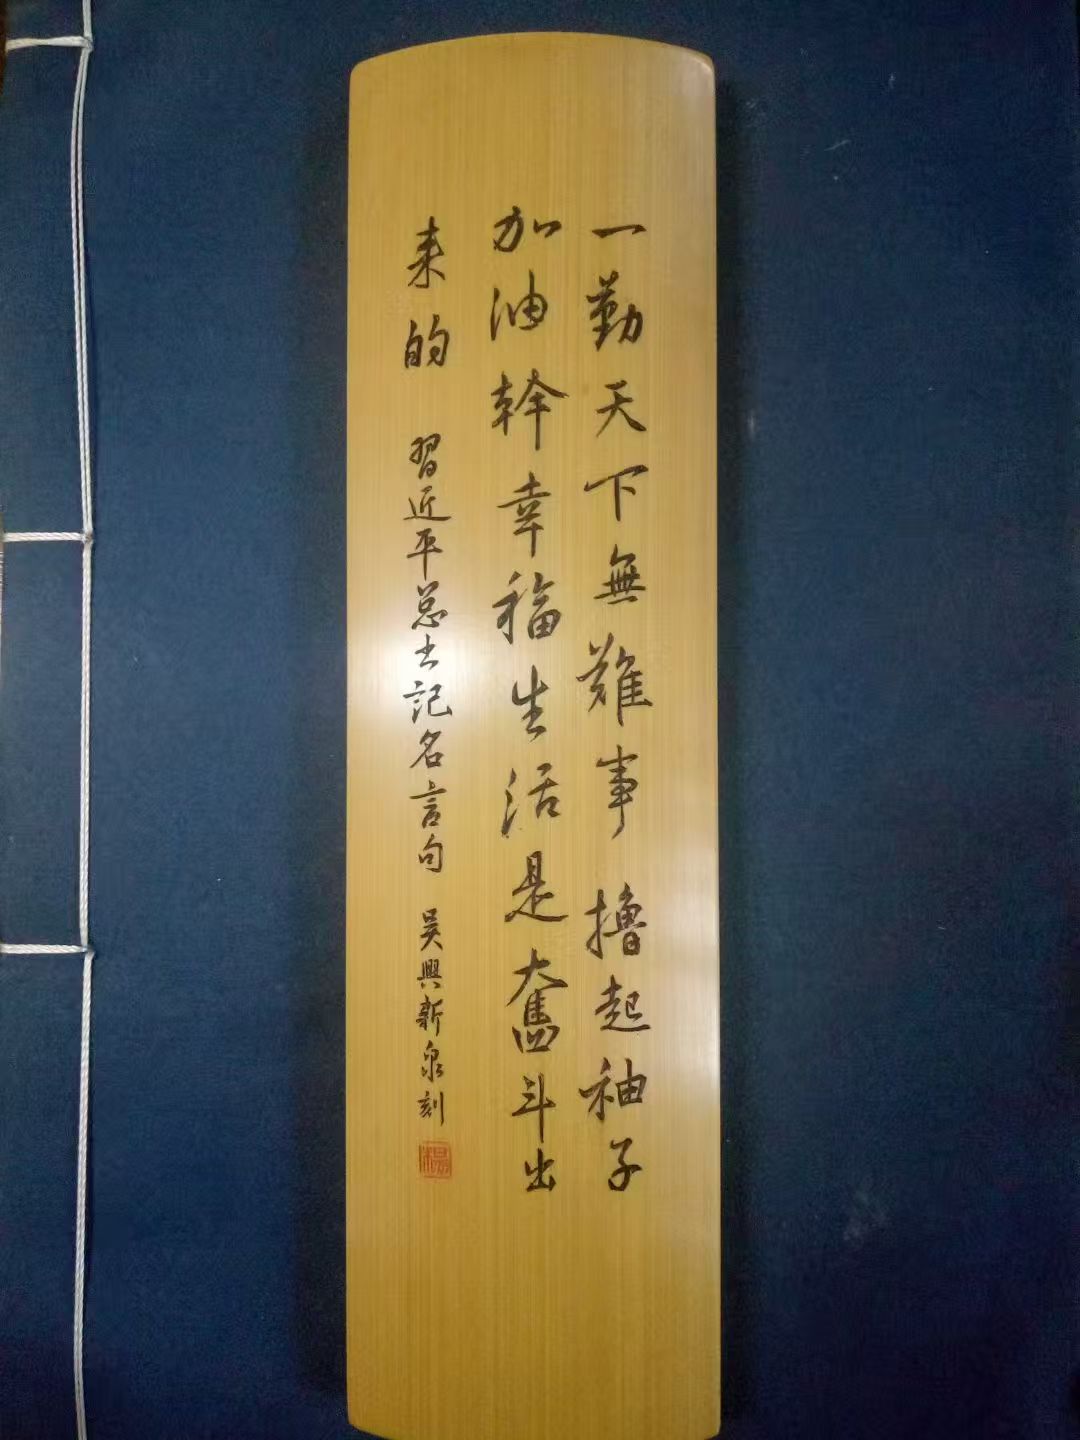 一勤天下無難事 擼起袖子
加油幹幸福生活是奮斗出
来的 習近平总书記名言句 吴興新泉刻